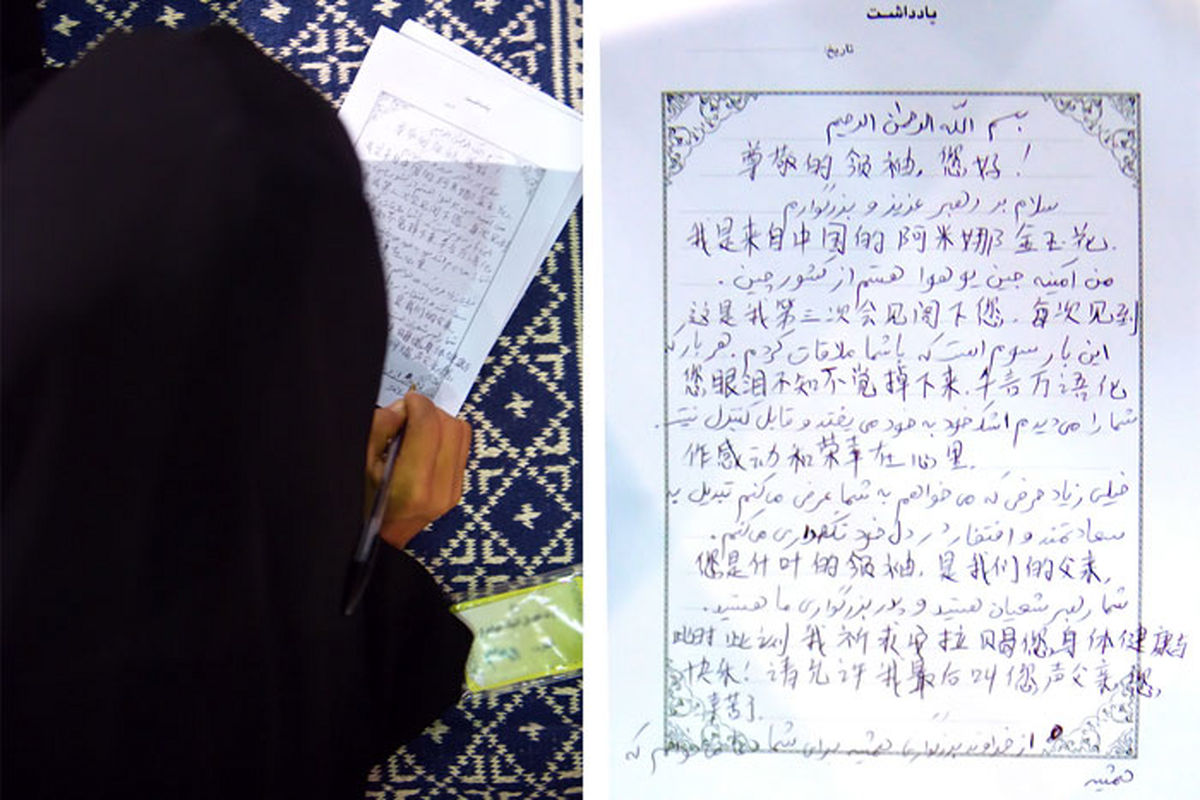 یادداشت
تاریخ:
بسم الله الرحمن الرحیم
尊敬的领袖,您好!
سلام بر رهبر عزیز و بزرگوارم
我是来自中国的阿米娜 金玉花.
من آمینه جین یو هوا هستم از کشور چین.
这是我第三次会见阁下您.每次见到
این بار سوم است که با شما ملاقات کردم. هر بار که
您眼泪不知不觉掉下来.千言万语化
شما را می دیدم اشک خود به خود می یفتد و قابل کنترل نیست.
作感动和荣幸在心里.
خیلی زیاد حرفی که می خواهم به شما عرض می کنم تبدیل به
سعادتمند و افتخار در دل خود نگهداری می کنم.
您是什叶的领袖.是我们的父亲,
شما رهبر شعیان هستید و پدر بزرگواری ما هستید.
此时此刻我祈求安拉赐您身体健康与
快乐!请允许我最后叫您声父亲,您,
辛苦了.
از خداوند بزرگواری همیشه برای شما که
همیشه